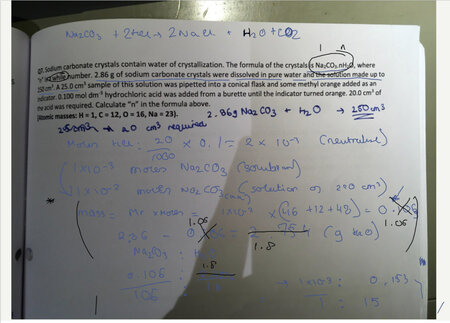 Na2CO3 + 2HCl → 2NaCl + H2O + CO2
1 n
Q7. Sodium carbonate crystals contain water of crystallization. The formula of the crystals is Na2CO3.nH2O, where
"n" is a whole number. 2.86 g of sodium carbonate crystals were dissolved in pure water and the solution made up to
250 cm3. A 25.0 cm3 sample of this solution was pipetted into a conical flask and some methyl orange added as an
indicator. 0.100 mol dm-3 hydrochloric acid was added from a burette until the indicator turned orange. 20.0 cm3 of
the acid was required. Calculate "n" in the formula above.
[Atomic masses: H = 1, C = 12, O = 16, Na = 23].
2.86g Na2CO3 + H2O → 250cm3
→ 20 cm3 required
Moles HCl: 20/1000 × 0.1 = 2 × 10-3 (neutralise)
1×10-3 moles Na2CO3 (solution)
1×10-2 moles Na2CO3 (solution of 250 cm3)
mass = Mr × moles = 1×10-2 × (46 + 12 + 48) =
1.06
1.06
2.86 -
1.8
Na2CO3 :
0.106
106
1.8
→ 1×10-3 : 0.153
1 : 15